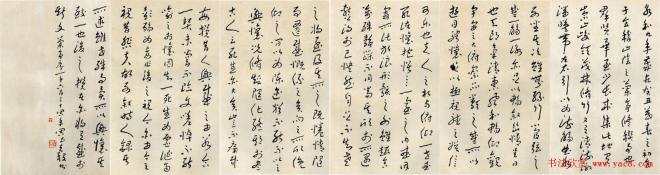 永和九年歲在癸丑暮春之初會
于會稽山陰之蘭亭修禊事也
群賢畢至少長咸集此地有
崇山峻領茂林修竹又有清流激
湍暎帶左右引以為流觴曲水
列坐其次雖無絲竹管弦之
盛一觴一詠亦足以暢敘幽情是日
也天朗氣清惠風和暢仰觀宇
宙之大俯察品類之盛所以
遊目騁懷足以極視聽之娛信
可樂也夫人之相與俯仰一世或
取諸懷抱悟言一室之內或因
寄所託放浪形骸之外雖趣
舍萬殊靜躁不同當其欣於所遇
暫得於己快然自足不知老
之將至及其所之既惓情隨
事遷感慨係之矣向之所欣俛
仰之間以為陳迹猶不能不以之
興懷況修短隨化終期於盡
古人云死生亦大矣豈不痛哉
每攬昔人興感之由若合
一契未嘗不臨文嗟悼不能
喻之於懷固知一死生為虛誕齊
彭殤為妄作後之視今亦由今之
視昔悲夫故列敘時人錄其
所述雖世殊事異所以興懷其
致一也後之攬者亦將有感於
斯文